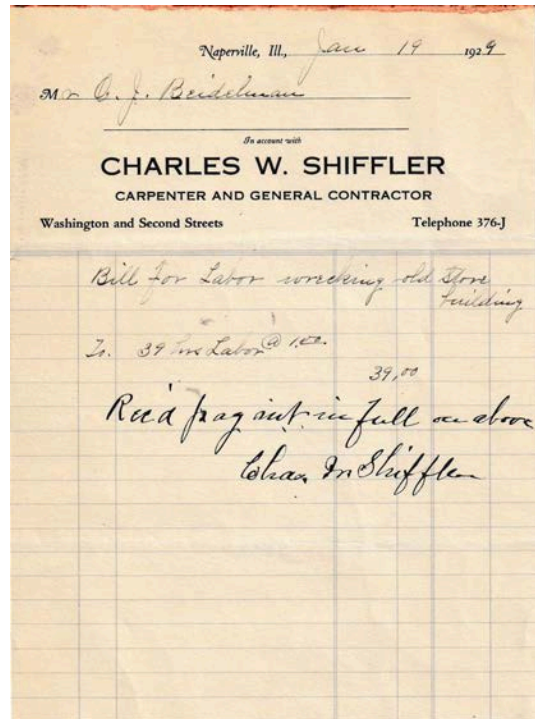 Naperville, Ill., Jan 19 1929
Mr O. J. Beidelman
In account with
CHARLES W. SHIFFLER
CARPENTER AND GENERAL CONTRACTOR
Washington and Second Streets Telephone 376-J
Bill for Labor wrecking old Store
building
To. 39 hrs Labor @ 1.00
39.00
Rec'd paymt in full on above
Chas. W Shiffler